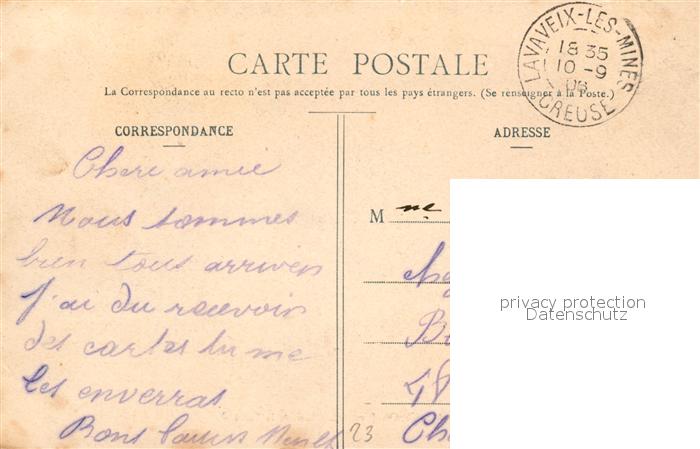 CARTE POSTALE
La Correspondance au recto n'est pas acceptée par tous les pays étrangers. (Se renseigner à la Poste.)
LAVAVEIX-LES-MINES
18 35
10 -9
06
CREUSE
CORRESPONDANCE
Chere amie
Nous sommes
bien tous arrives
J'ai du recevoir
des cartes tu me
les enverras
Bons
23
ADRESSE
M me
48
Ch
privacy protection
Datenschutz